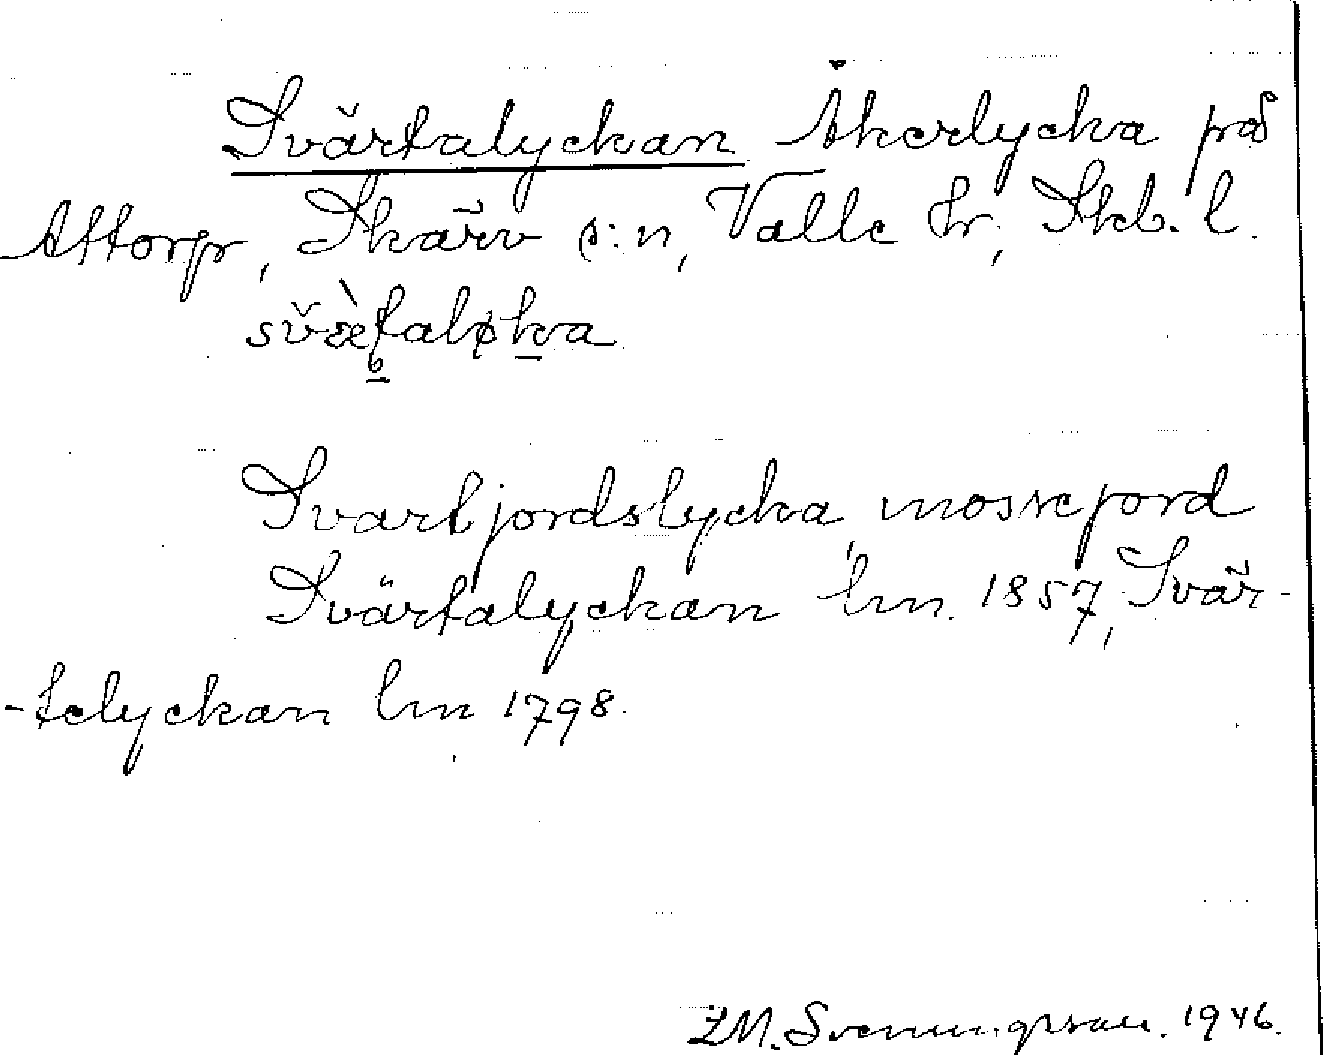 Svärtalyckan Åkerlycka på
Attorp, Skärv s:n, Valle hr, Skb. l.
Svartjordslycka, mossejord
Svärtalyckan lm. 1857, Svär-
-telyckan lm 1798.
L.M. Svenungsson. 1946.